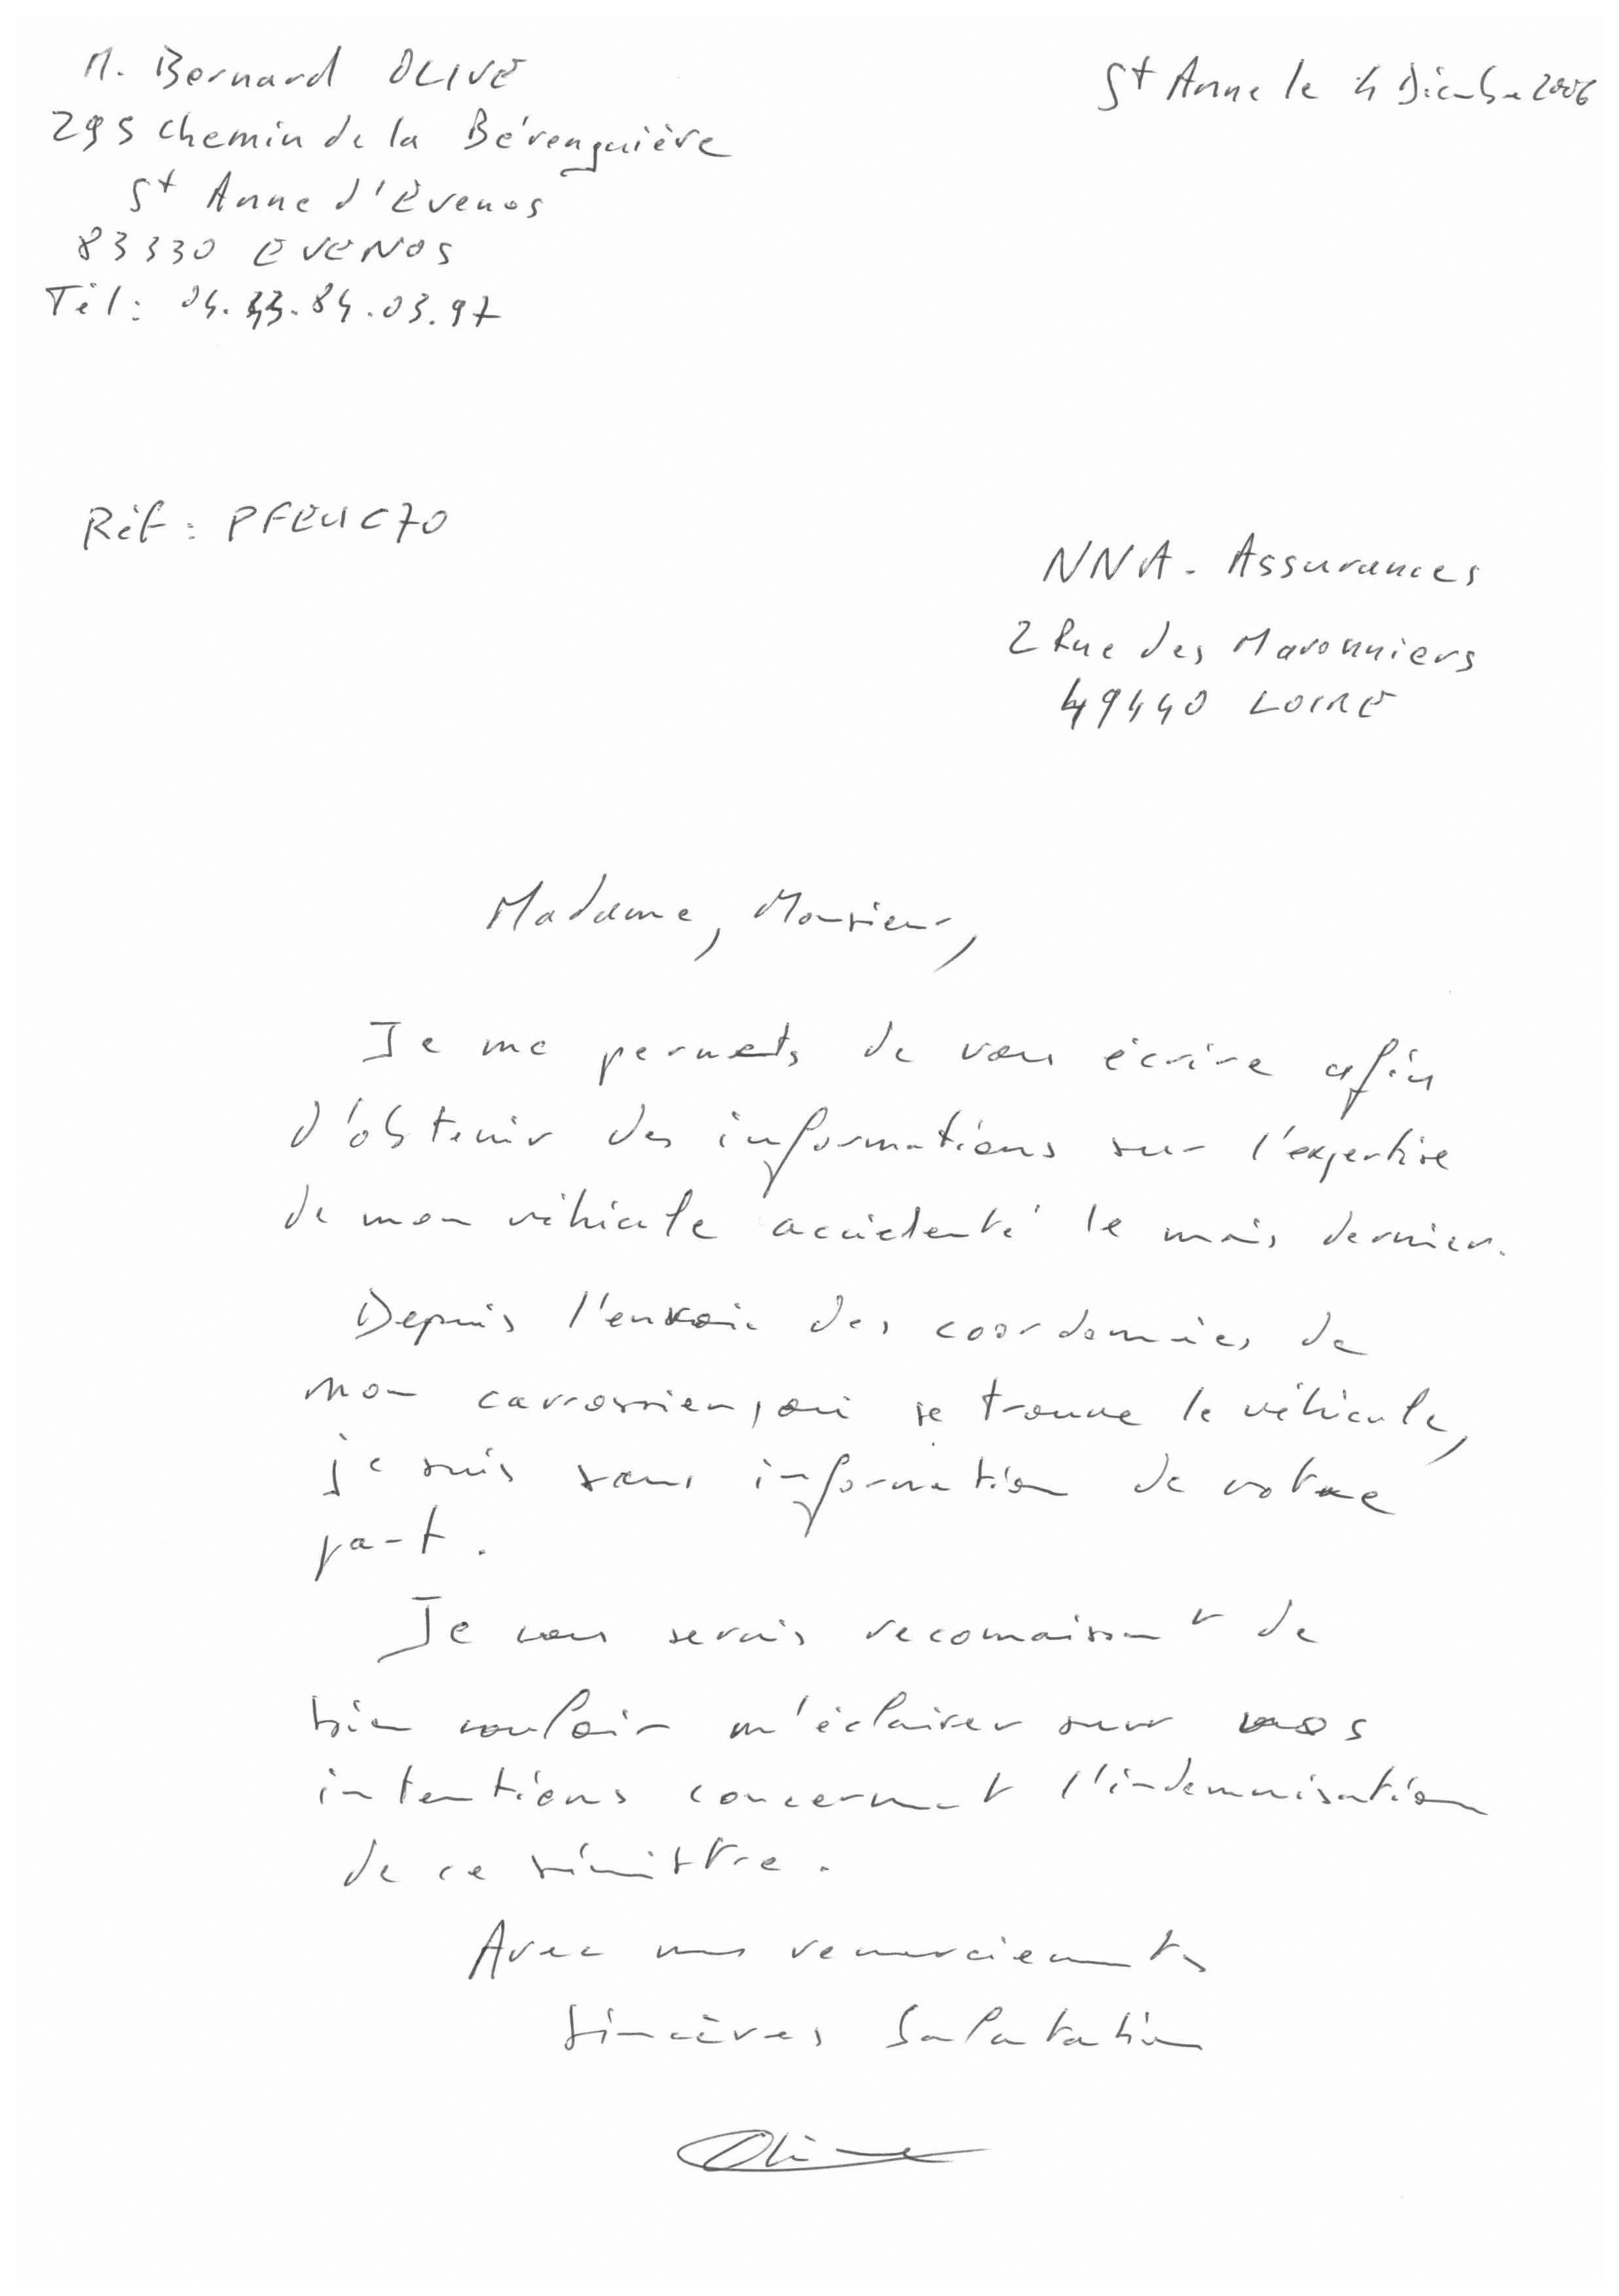 M. Bernard OLIVE
295 chemin de la Bérenguière
St Anne d'Evenos
83330 EVENOS
Tél : 04.33.84.03.97
St Anne le 4 Décembre 2006
Réf : PFEUC70
NNA - Assurances
2 Rue des Maronniers
49440 LOIRE
Madame, Monsieur,
Je me permets de vous écrire afin
d'obtenir des informations sur l'expertise
de mon véhicule accidenté le mois dernier.
Depuis l'envoie des coordonnées de
mon carrossier, où se trouve le véhicule,
je suis sans information de votre
part.
Je vous serais reconnaissant de
bien vouloir m'éclairer sur vos
intentions concernant l'indemnisation
de ce sinistre.
Avec mes remerciements
Sincères Salutation
Olive